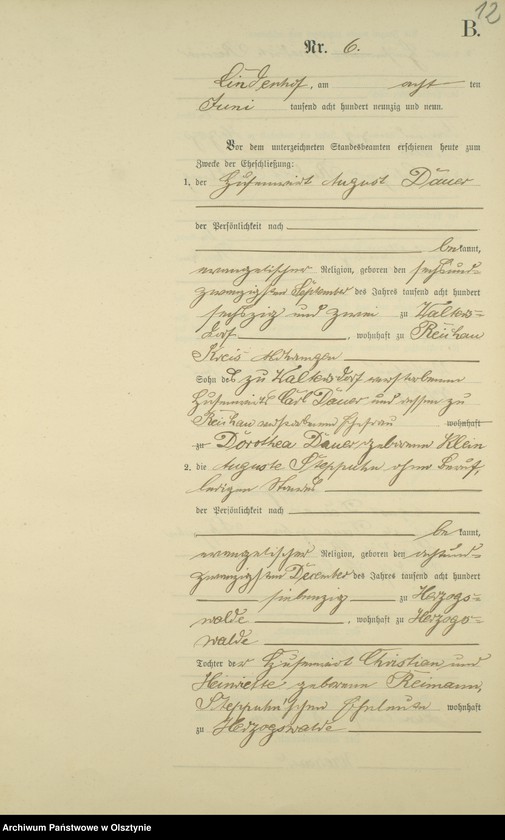 12
B.
Nr. 6.
Lindenhof, am acht ten
Juni tausend acht hundert neunzig und neun.
Vor dem unterzeichneten Standesbeamten erschienen heute zum
Zwecke der Eheschließung:
1. der Hufenwirt August Dauer
der Persönlichkeit nach
bekannt,
evangelischer Religion, geboren den sechsund=
zwanzigsten September des Jahres tausend acht hundert
sechszig und zwei zu Walters=
dorf, wohnhaft zu Reichau
Kreis Mohrungen
Sohn des zu Waltersdorf verstorbenen
Hufenwirts Carl Dauer und dessen zu
Reichau verstorbenen Ehefrau wohnhaft
zu Dorothea Dauer geborene Klein
2. die Auguste Steppuhn ohne Beruf,
ledigen Standes
der Persönlichkeit nach
bekannt,
evangelischer Religion, geboren den achtund=
zwanzigsten December des Jahres tausend acht hundert
siebenzig zu Herzogs=
walde, wohnhaft zu Herzogs=
walde
Tochter der Hufenwirt Christian und
Henriette geborene Reimann,
Steppuhn'schen Eheleute wohnhaft
zu Herzogswalde
Archiwum Państwowe w Olsztynie